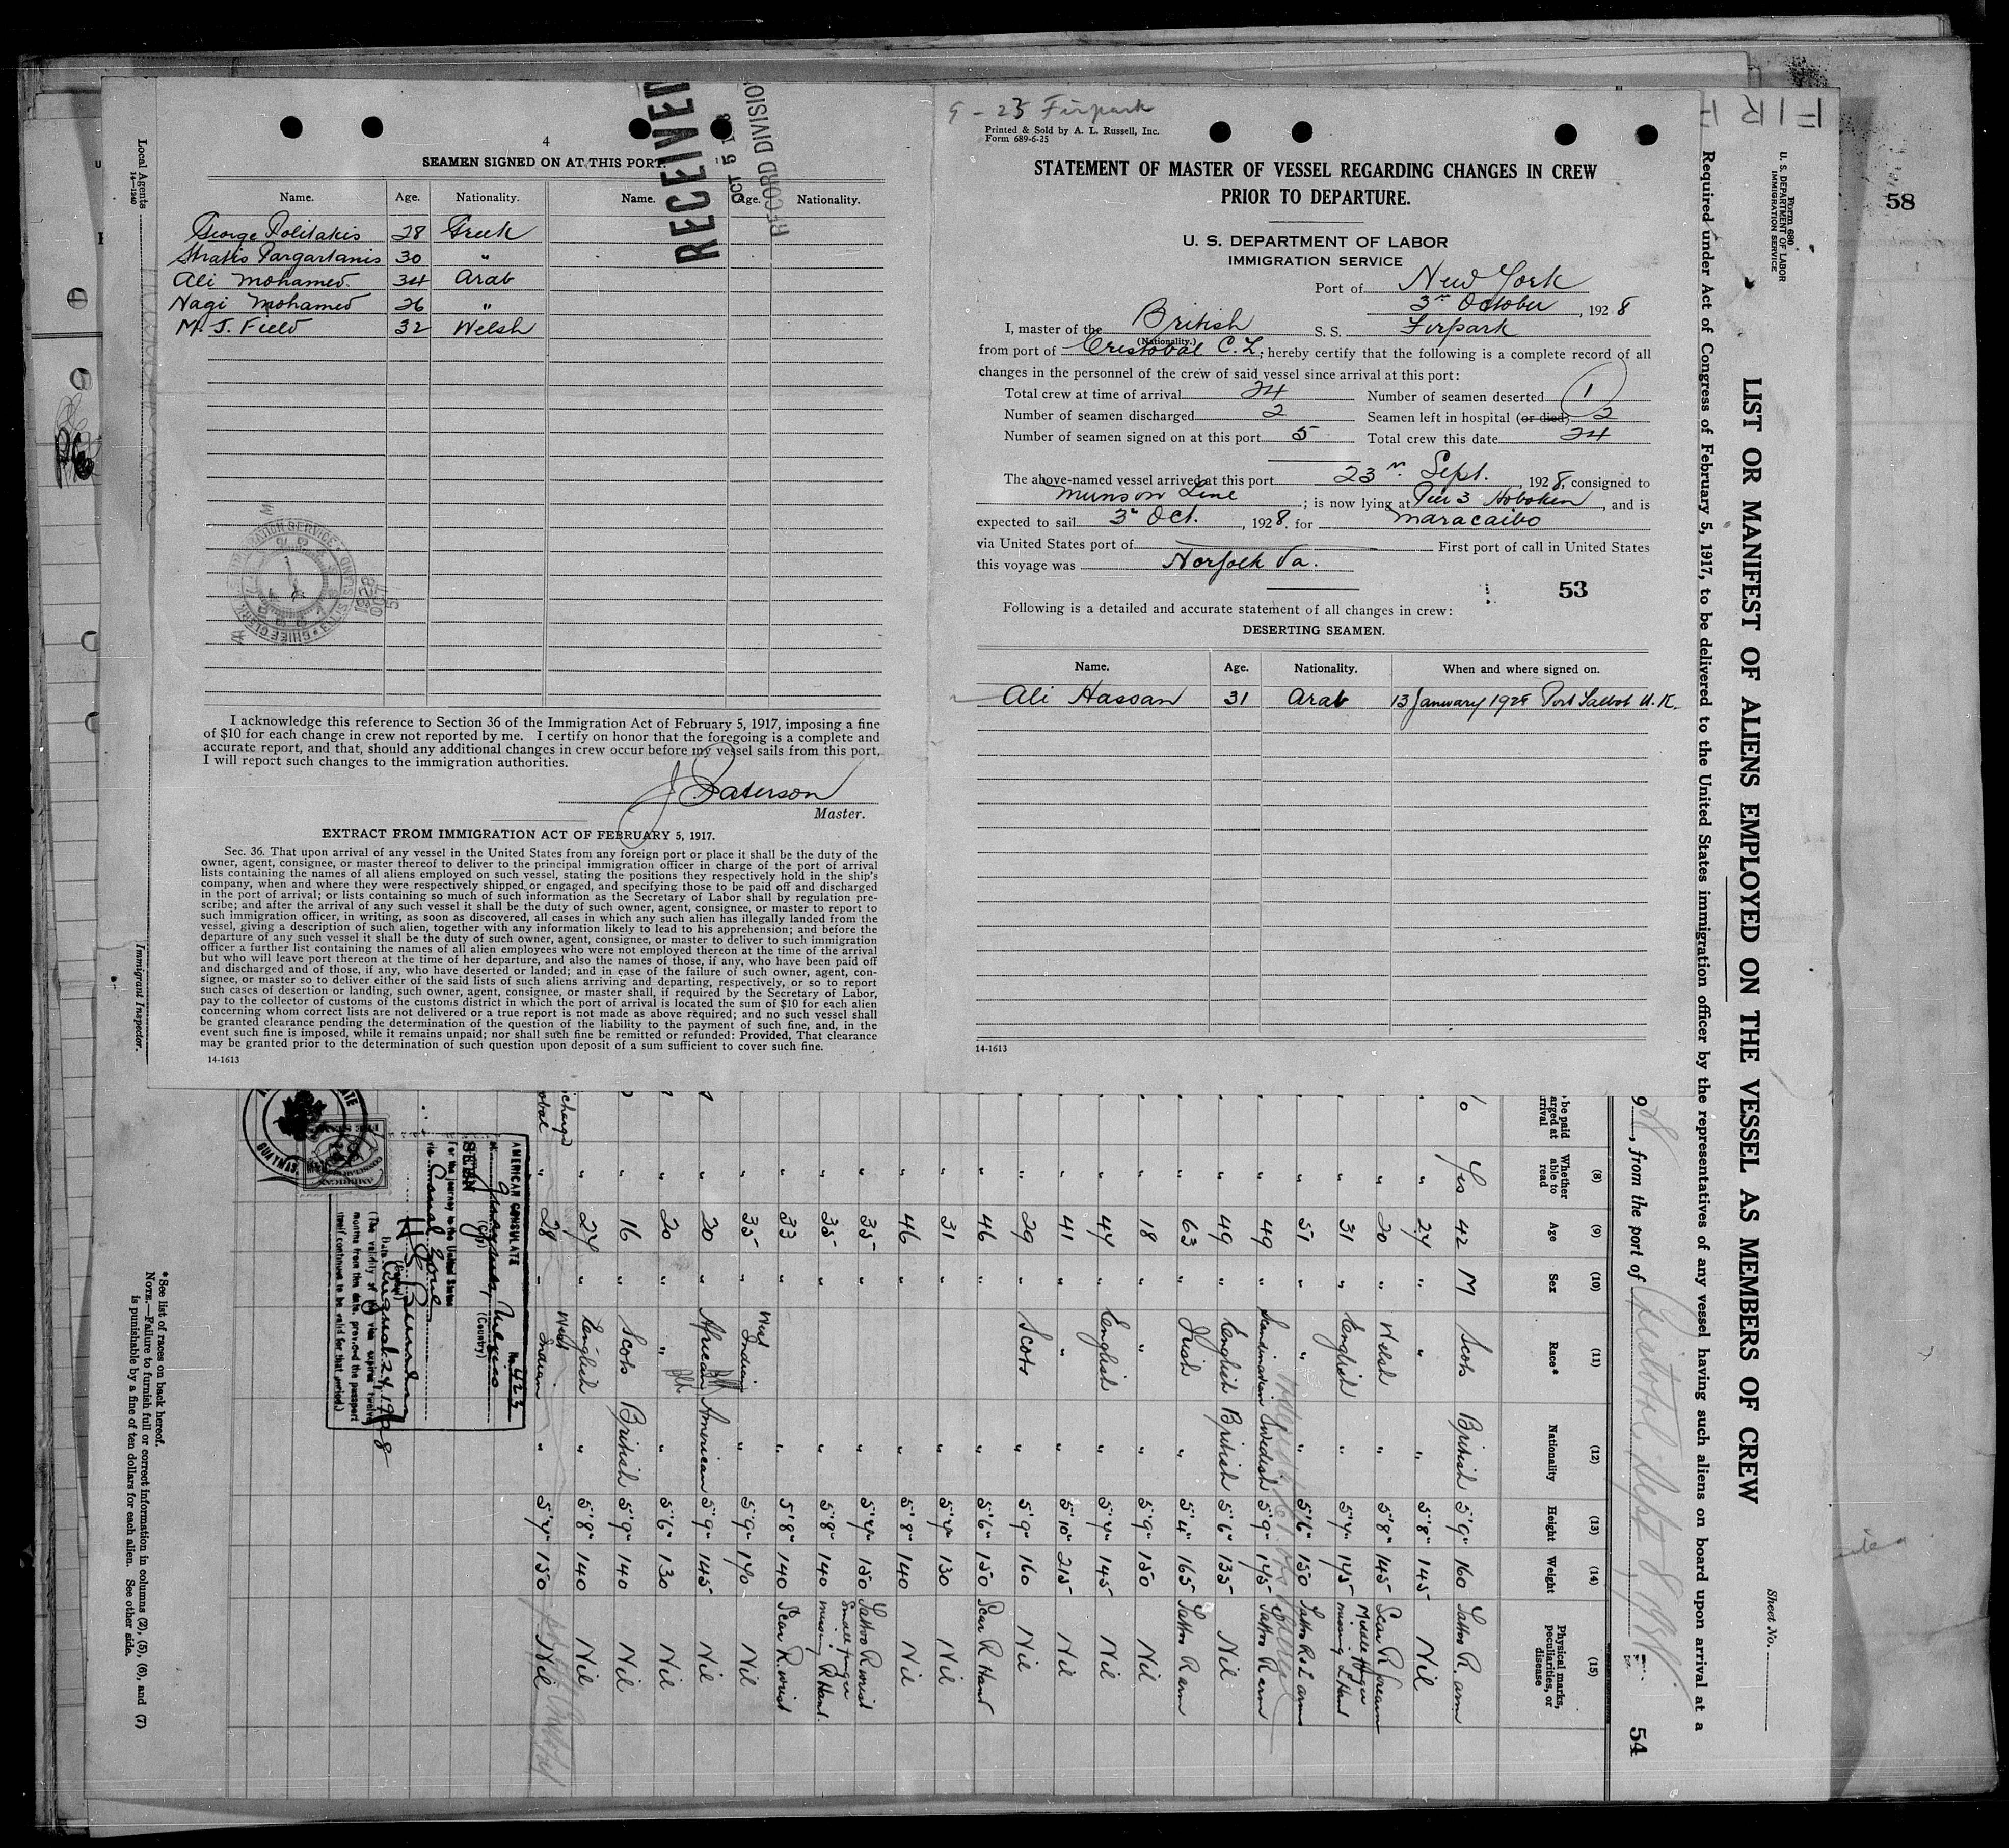 4
SEAMEN SIGNED ON AT THIS PORT.
Name. Age. Nationality. Name. Age. Nationality.
George Politakis 28 Greek
Stratis Pargartanis 30 "
Ali Mohamed. 34 Arab
Nagi Mohamed 26 "
M. J. Field 32 Welsh
RECEIVED
OCT 5
RECORD DIVISION
I acknowledge this reference to Section 36 of the Immigration Act of February 5, 1917, imposing a fine
of $10 for each change in crew not reported by me. I certify on honor that the foregoing is a complete and
accurate report, and that, should any additional changes in crew occur before my vessel sails from this port,
I will report such changes to the immigration authorities.
J Paterson
Master.
EXTRACT FROM IMMIGRATION ACT OF FEBRUARY 5, 1917.
Sec. 36. That upon arrival of any vessel in the United States from any foreign port or place it shall be the duty of the
owner, agent, consignee, or master thereof to deliver to the principal immigration officer in charge of the port of arrival
lists containing the names of all aliens employed on such vessel, stating the positions they respectively hold in the ship's
company, when and where they were respectively shipped or engaged, and specifying those to be paid off and discharged
in the port of arrival; or lists containing so much of such information as the Secretary of Labor shall by regulation pre-
scribe; and after the arrival of any such vessel it shall be the duty of such owner, agent, consignee, or master to report to
such immigration officer, in writing, as soon as discovered, all cases in which any such alien has illegally landed from the
vessel, giving a description of such alien, together with any information likely to lead to his apprehension; and before the
departure of any such vessel it shall be the duty of such owner, agent, consignee, or master to deliver to such immigration
officer a further list containing the names of all alien employees who were not employed thereon at the time of the arrival
but who will leave port thereon at the time of her departure, and also the names of those, if any, who have been paid off
and discharged and of those, if any, who have deserted or landed; and in case of the failure of such owner, agent, con-
signee, or master so to deliver either of the said lists of such aliens arriving and departing, respectively, or so to report
such cases of desertion or landing, such owner, agent, consignee, or master shall, if required by the Secretary of Labor,
pay to the collector of customs of the customs district in which the port of arrival is located the sum of $10 for each alien
concerning whom correct lists are not delivered or a true report is not made as above required; and no such vessel shall
be granted clearance pending the determination of the question of the liability to the payment of such fine, and, in the
event such fine is imposed, while it remains unpaid; nor shall such fine be remitted or refunded: Provided, That clearance
may be granted prior to the determination of such question upon deposit of a sum sufficient to cover such fine.
14-1613
9 - 23 Firpark
Printed & Sold by A. L. Russell, Inc.
Form 689-6-25
STATEMENT OF MASTER OF VESSEL REGARDING CHANGES IN CREW
PRIOR TO DEPARTURE.
U. S. DEPARTMENT OF LABOR
IMMIGRATION SERVICE
Port of New York
3rd October, 1928
I, master of the British S. S. Firpark
(Nationality.)
from port of Cristobal C.Z., hereby certify that the following is a complete record of all
changes in the personnel of the crew of said vessel since arrival at this port:
Total crew at time of arrival 24 Number of seamen deserted 1
Number of seamen discharged 2 Seamen left in hospital (or died) 2
Number of seamen signed on at this port 5 Total crew this date 24
The above-named vessel arrived at this port 23rd Sept., 1928, consigned to
Munson Line; is now lying at Pier 3 Hoboken, and is
expected to sail 3rd Oct., 1928, for Maracaibo
via United States port of First port of call in United States
this voyage was Norfolk Va.
53
Following is a detailed and accurate statement of all changes in crew:
DESERTING SEAMEN.
Name. Age. Nationality. When and where signed on.
Ali Hassan 31 Arab 13 January 1928 Port Talbot U.K.
14-1613
58
Local Agents
14-1240
Immigrant Inspector.
Form 680
U. S. DEPARTMENT OF LABOR
IMMIGRATION SERVICE
Sheet No.
LIST OR MANIFEST OF ALIENS EMPLOYED ON THE VESSEL AS MEMBERS OF CREW
Required under Act of Congress of February 5, 1917, to be delivered to the United States immigration officer by the representatives of any vessel having such aliens on board upon arrival at a
, from the port of Cristobal Sept 8, 1928
54
(8) (9) (10) (11) (12) (13) (14) (15)
Whether able to read Age Sex Race* Nationality Height Weight Physical marks, peculiarities, or disease
Yes 42 M Scots British 5'9" 160 Tattoo R. arm
" 24 " " " 5'8" 145 Nil
" 20 " Welsh " 5'8" 145 Scar R forearm
" 31 " English " 5'4" 145 Middle finger missing L Hand
" 51 " " " 5'6" 150 Tattoo R & L arms
" 49 " Scandinavian Swedish 5'9" 145 Tattoo R arm
" 49 " English British 5'6" 135 Nil
" 63 " Irish " 5'4" 165 Tattoo R arm
" 18 " " " 5'9" 150 Nil
" 44 " English " 5'4" 145 Nil
" 41 " " " 5'10" 215 Nil
" 29 " Scots " 5'9" 160 Nil
" 46 " " 5'6" 150 Scar R Hand
" 31 " " 5'4" 130 Nil
" 46 " " 5'8" 140 Nil
" 35 " " 5'4" 150 Tattoo R wrist
" 35 " " 5'8" 140 Small finger missing R Hand.
" 33 " " 5'8" 140 Scar R. wrist
" 35 " West Indian " 5'9" 140 Nil
" 20 " African American 5'9" 145 Nil
" 20 " " " 5'6" 130 Nil
" 16 " Scots British 5'9" 140 Nil
" 24 " English " 5'8" 140 Nil
" 28 " West Indian " 5'4" 150 Nil
AMERICAN CONSULATE
at Guaymas, Mexico No. 423
(City) (Country)
SEEN
For the journey to the United States
via Canal Zone
Date August 24, 1928
(The validity of this visa expires twelve
months from this date, provided the passport
itself continues to be valid for that period.)
GUAYMAS
* See list of races on back hereof.
NOTE.—Failure to furnish full or correct information in columns (2), (5), (6), and (7)
is punishable by a fine of ten dollars for each alien. See other side.